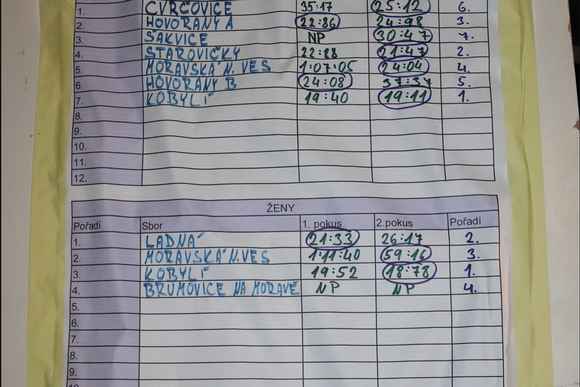 1. CVRČOVICE 35:17 25:12 6.
2. HOVORANY A 22:86 24:98 3.
3. ŠAKVICE NP 30:47 7.
4. STAROVIČKY 22:88 21:47 2.
5. MORAVSKÁ N. VES 1:07:05 24:04 4.
6. HOVORANY B 24:08 37:37 5.
7. KOBYLÍ 19:40 19:11 1.
8.
9.
10.
11.
12.
ŽENY
Pořadí Sbor 1. pokus 2.pokus Pořadí
1. LADNÁ 21:33 26:17 2.
2. MORAVSKÁ N.VES 1:11:40 59:16 3.
3. KOBYLÍ 19:52 18:78 1.
4. BRUMOVICE NA MORAVĚ NP NP 4.
5.
6.
7.
8.
9.